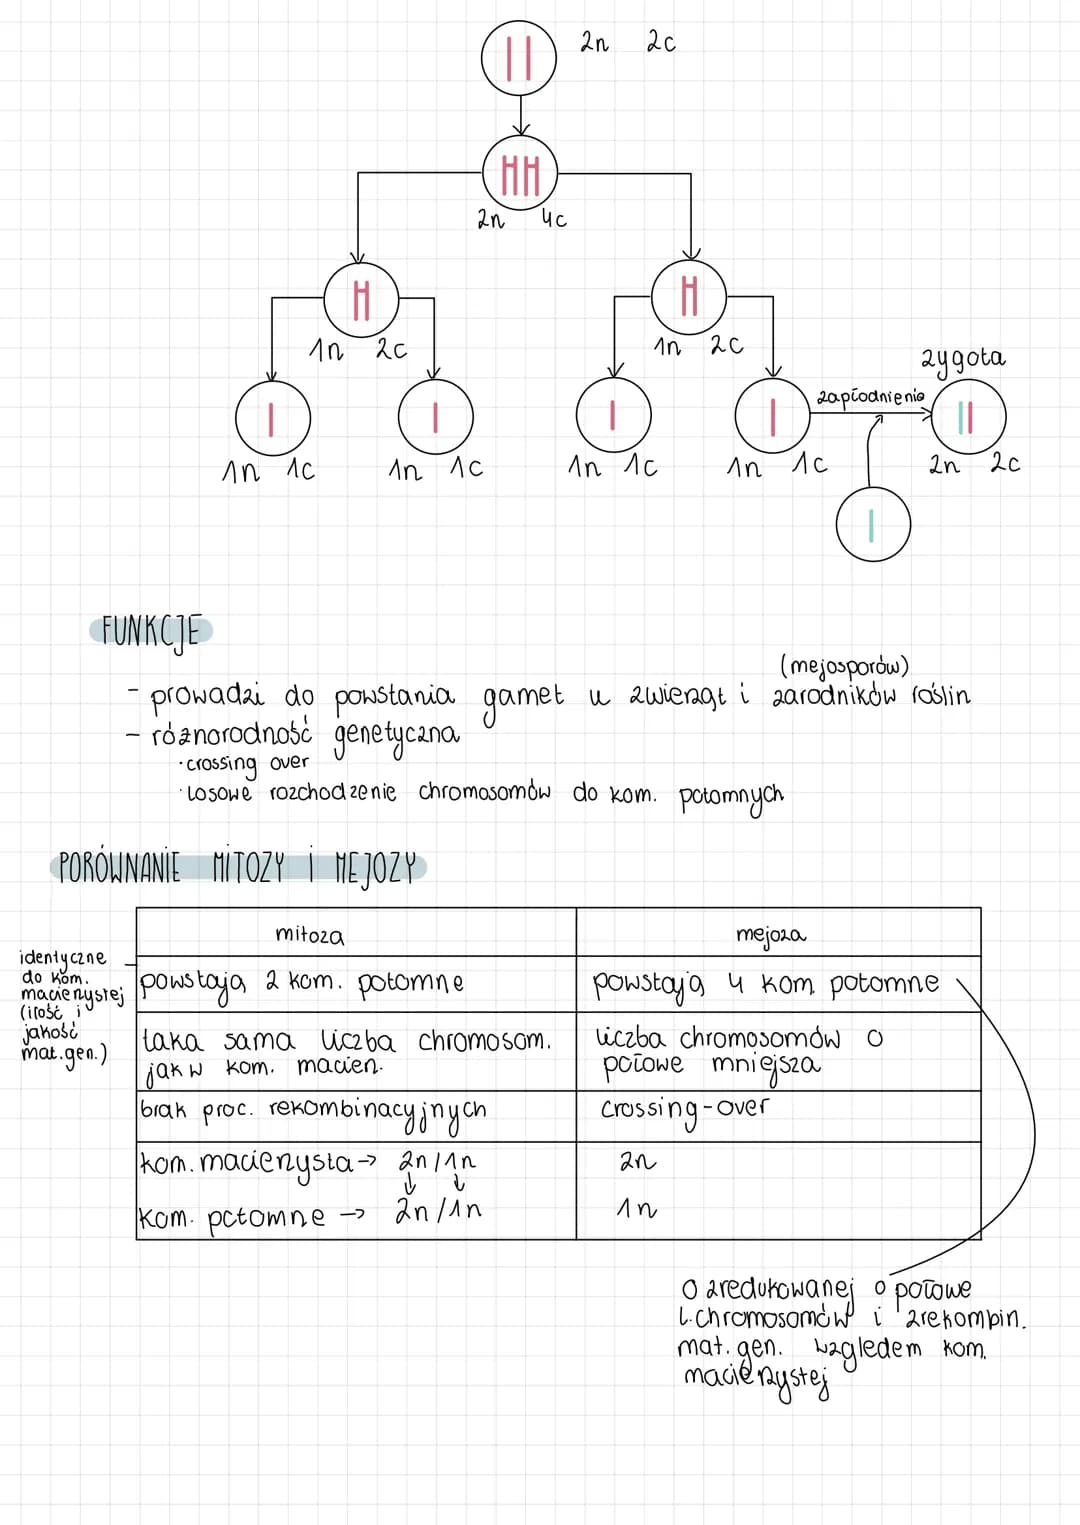 2n 2c
2n 4c
1n 2c
1n 2c
zygota
zapłodnienie
1n 1c
1n 1c
1n 1c
1n 1c
2n 2c
FUNKCJE
(mejosporów)
- prowadzi do powstania gamet u zwierząt i zarodników roślin
- różnorodność genetyczna
·crossing over
·losowe rozchodzenie chromosomów do kom. potomnych
PORÓWNANIE MITOZY I MEJOZY
mitoza
mejoza
identyczne
do kom.
macierzystej
(ilość i
jakość
mat.gen.)
powstają 2 kom. potomne
powstają 4 kom potomne
taka sama liczba chromosom.
jak w kom. macierz.
liczba chromosomów o
połowe mniejsza
brak proc. rekombinacyjnych
crossing-over
kom. macierzysta → 2n/1n
2n
kom. potomne → 2n/1n
1n
o zredukowanej o połowe
l.chromosomów i zrekombin.
mat. gen. względem kom.
macierzystej